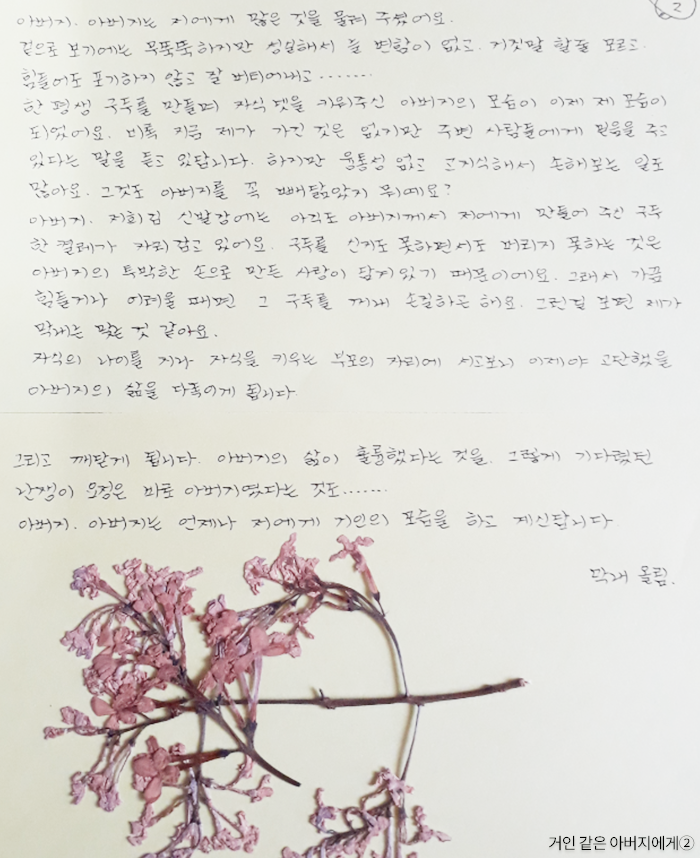 2
아버지. 아버지는 저에게 많은 것을 물려 주셨어요.
겉으로 보기에는 무뚝뚝하지만 성실해서 늘 변함이 없고. 거짓말 할줄 모르고.
힘들어도 포기하지 않고 잘 버티어내고.......
한 평생 구두를 만들며 자식 넷을 키워주신 아버지의 모습이 이제 제 모습이
되었어요. 비록 지금 제가 가진 것은 없지만 주변 사람들에게 믿음을 주고
있다는 말을 듣고 있답니다. 하지만 융통성 없고 고지식해서 손해보는 일도
많아요. 그것도 아버지를 꼭 빼닮았지 뭐예요?
아버지. 저희집 신발장에는 아직도 아버지께서 저에게 만들어 주신 구두
한 켤레가 자리잡고 있어요. 구두를 신지도 못하면서도 버리지 못하는 것은
아버지의 투박한 손으로 만든 사랑이 담겨있기 때문이에요. 그래서 가끔
힘들거나 어려울 때면 그 구두를 꺼내 손질하곤 해요. 그런걸 보면 제가
막내는 맞는 것 같아요.
자식의 나이를 지나 자식을 키우는 부모의 자리에 서고보니 이제야 고단했을
아버지의 삶을 다독이게 됩니다.
그리고 깨닫게 됩니다. 아버지의 삶이 훌륭했다는 것을. 그렇게 기다렸던
난쟁이 요정은 바로 아버지였다는 것도.......
아버지. 아버지는 언제나 저에게 거인의 모습을 하고 계신답니다.
막내 올림.
거인 같은 아버지에게②